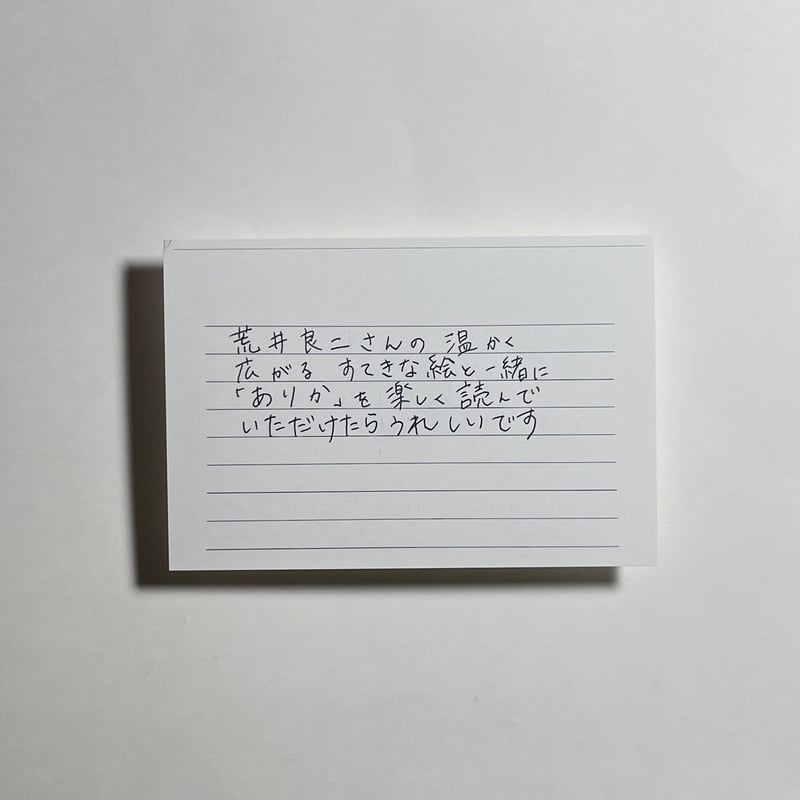 荒井良二さんの 温かく
広がる すてきな絵と一緒に
「ありか」を 楽しく読んで
いただけたらうれしいです